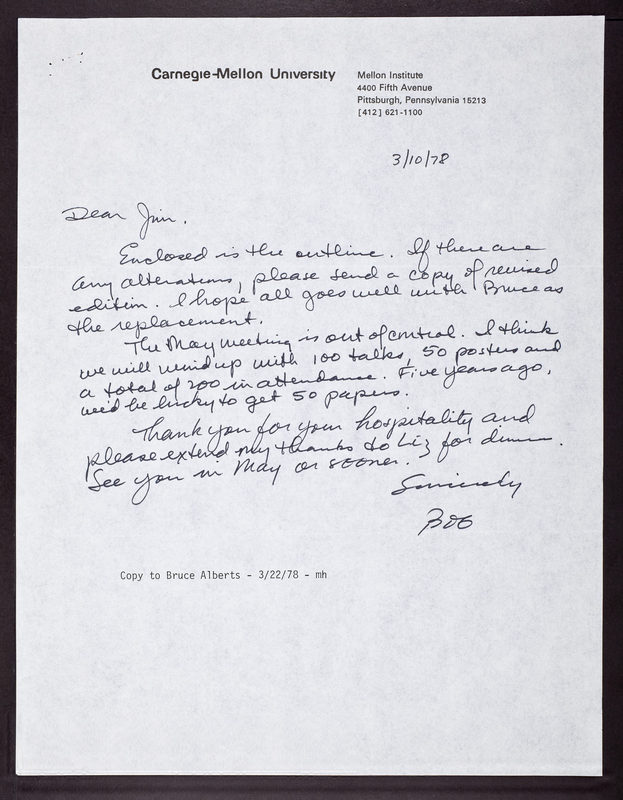 Carnegie-Mellon University
Mellon Institute
4400 Fifth Avenue
Pittsburgh, Pennsylvania 15213
[412] 621-1100
3/10/78
Dear Jim,
Enclosed is the outline. If there are
any alterations, please send a copy of revised
edition. I hope all goes well with Bruce as
the replacement.
The May meeting is out of control. I think
we will wind up with 100 talks, 50 posters and
a total of 200 in attendance. Five years ago,
we'd be lucky to get 50 papers.
Thank you for your hospitality and
please extend my thanks to Liz for dinner.
See you in May or sooner.
Sincerely
Bob
Copy to Bruce Alberts - 3/22/78 - mh